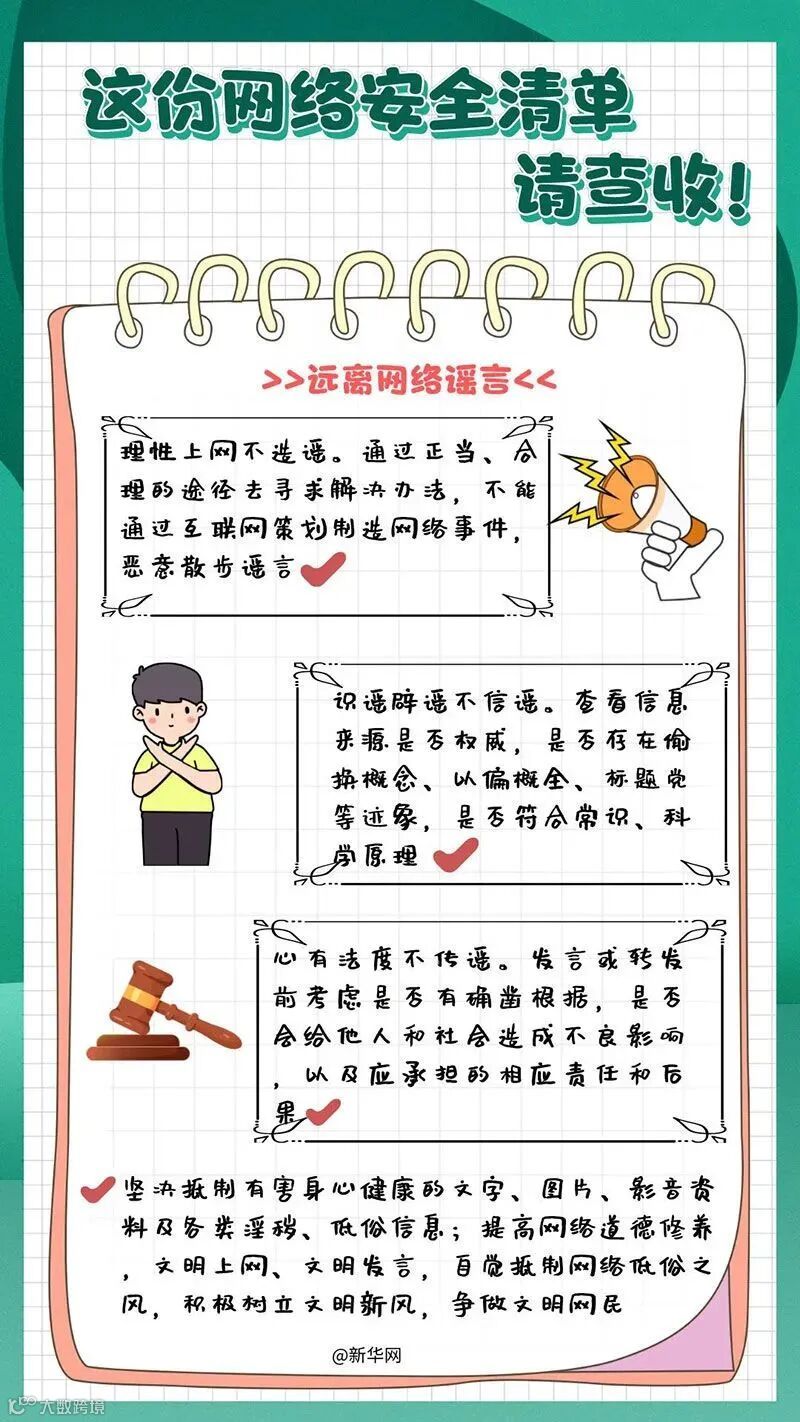 这份网络安全清单
请查收!
>>远离网络谣言<<
理性上网不造谣。通过正当、合
理的途径去寻求解决办法，不能
通过互联网策划制造网络事件，
恶意散步谣言
识谣辟谣不信谣。查看信息
来源是否权威，是否存在偷
换概念、以偏概全、标题党
等迹象，是否符合常识、科
学原理
心有法度不传谣。发言或转发
前考虑是否有确凿根据，是否
会给他人和社会造成不良影响
，以及应承担的相应责任和后
果
坚决抵制有害身心健康的文字、图片、影音资
料及各类淫秽、低俗信息；提高网络道德修养
，文明上网、文明发言，自觉抵制网络低俗之
风，积极树立文明新风，争做文明网民
@新华网
大数跨境